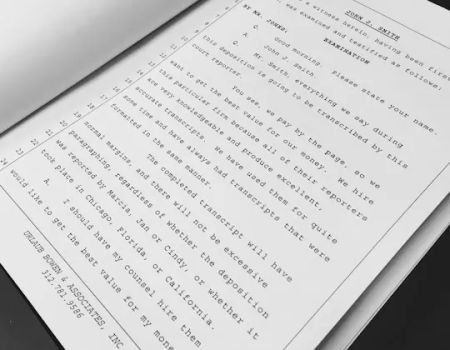 JOHN J. SMITH
a witness herein, having been first
was examined and testified as follows:
EXAMINATION
BY MR. JONES:
Q. Good morning, please state your name.
A. John J. Smith.
Q. Mr. Smith, everything we say during
this deposition is going to be transcribed by this
court reporter.
You see, we pay by the page, so we
want to get the best value for our money. We hire
this particular firm because all of their reporters
are very knowledgeable and produce excellent,
accurate transcripts. We have used them for quite
some time and have always had transcripts that were
formatted in the same manner.
The completed transcript will have
normal margins, and there will not be excessive
paragraphing, regardless of whether the deposition
was reported by Marcia, Jan or Cindy, or whether it
took place in Chicago, Florida, or California.
A. I should have my counsel hire them
would like to get the best value for my mone
URLAUB BOWEN & ASSOCIATES, INC
312.781.9586